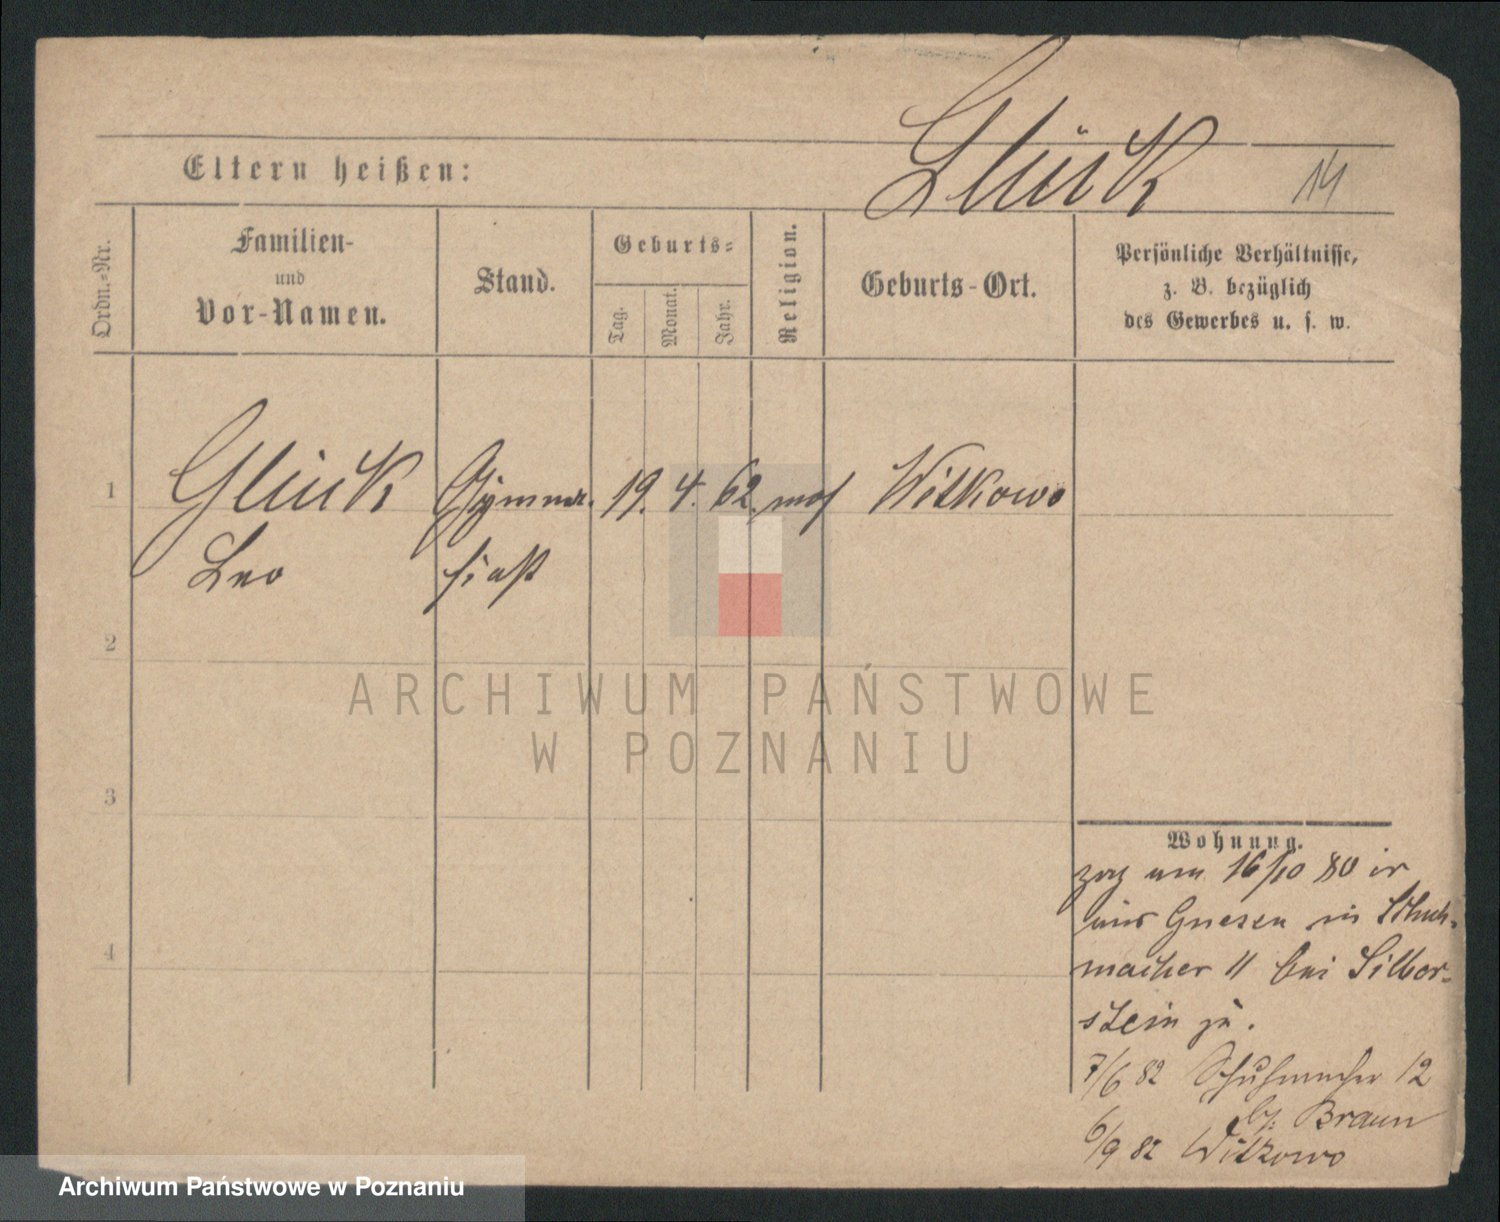 Glück
14
Eltern heißen:
Ordn.-Nr.
Familien-
und
Vor-Namen.
Stand.
Geburts-
Tag.
Monat.
Jahr.
Religion.
Geburts-Ort.
Persönliche Verhältnisse,
z. B. bezüglich
des Gewerbes u. s. w.
1
Glück Gymna- 19. 4. 62. mos Witkowo
Leo siast
2
3
4
Wohnung.
zog am 16/10 80 ir
aus Gnesen in Schuh-
macher 11 bei Silber-
stein zu.
7/6 82 Schuhmacher 12
b/. Braun
6/9 82 Witkowo
ARCHIWUM PAŃSTWOWE
W POZNANIU
Archiwum Państwowe w Poznaniu